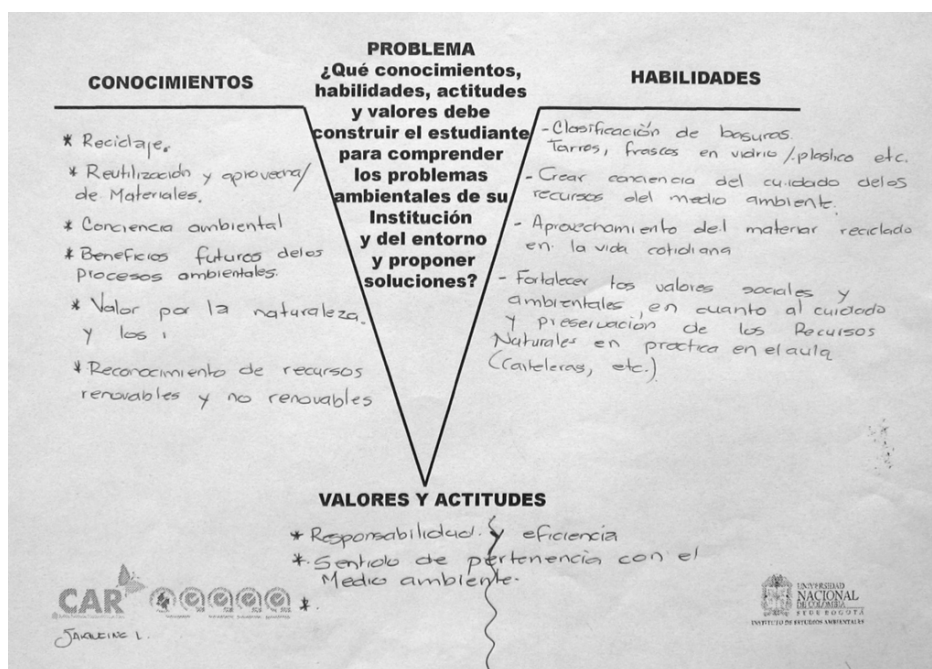 CONOCIMIENTOS
* Reciclaje.
* Reutilización y aprovecha/
de Materiales.
* Conciencia ambiental
* Beneficios futuros delos
procesos ambientales.
* Valor por la naturaleza.
y los
* Reconocimiento de recursos
renovables y no renovables
PROBLEMA
¿Qué conocimientos,
habilidades, actitudes
y valores debe
construir el estudiante
para comprender
los problemas
ambientales de su
Institución
y del entorno
y proponer
soluciones?
HABILIDADES
- Clasificación de basuras.
Tarros, frascos en vidrio /.plastico etc.
- Crear conciencia del cuidado delos
recursos del medio ambiente.
- Aprovechamiento del material reciclado
en la vida cotidiana
- Fortalecer los valores sociales y
ambientales, en cuanto al cuidado
y preservación de los Recursos
Naturales en practica en el aula
(Carteleras, etc.)
VALORES Y ACTITUDES
* Responsabilidad y eficiencia
* Sentido de pertenencia con el
Medio ambiente.
*
CAR
UNIVERSIDAD
NACIONAL
DE COLOMBIA
SEDE BOGOTÁ
INSTITUTO DE ESTUDIOS AMBIENTALES